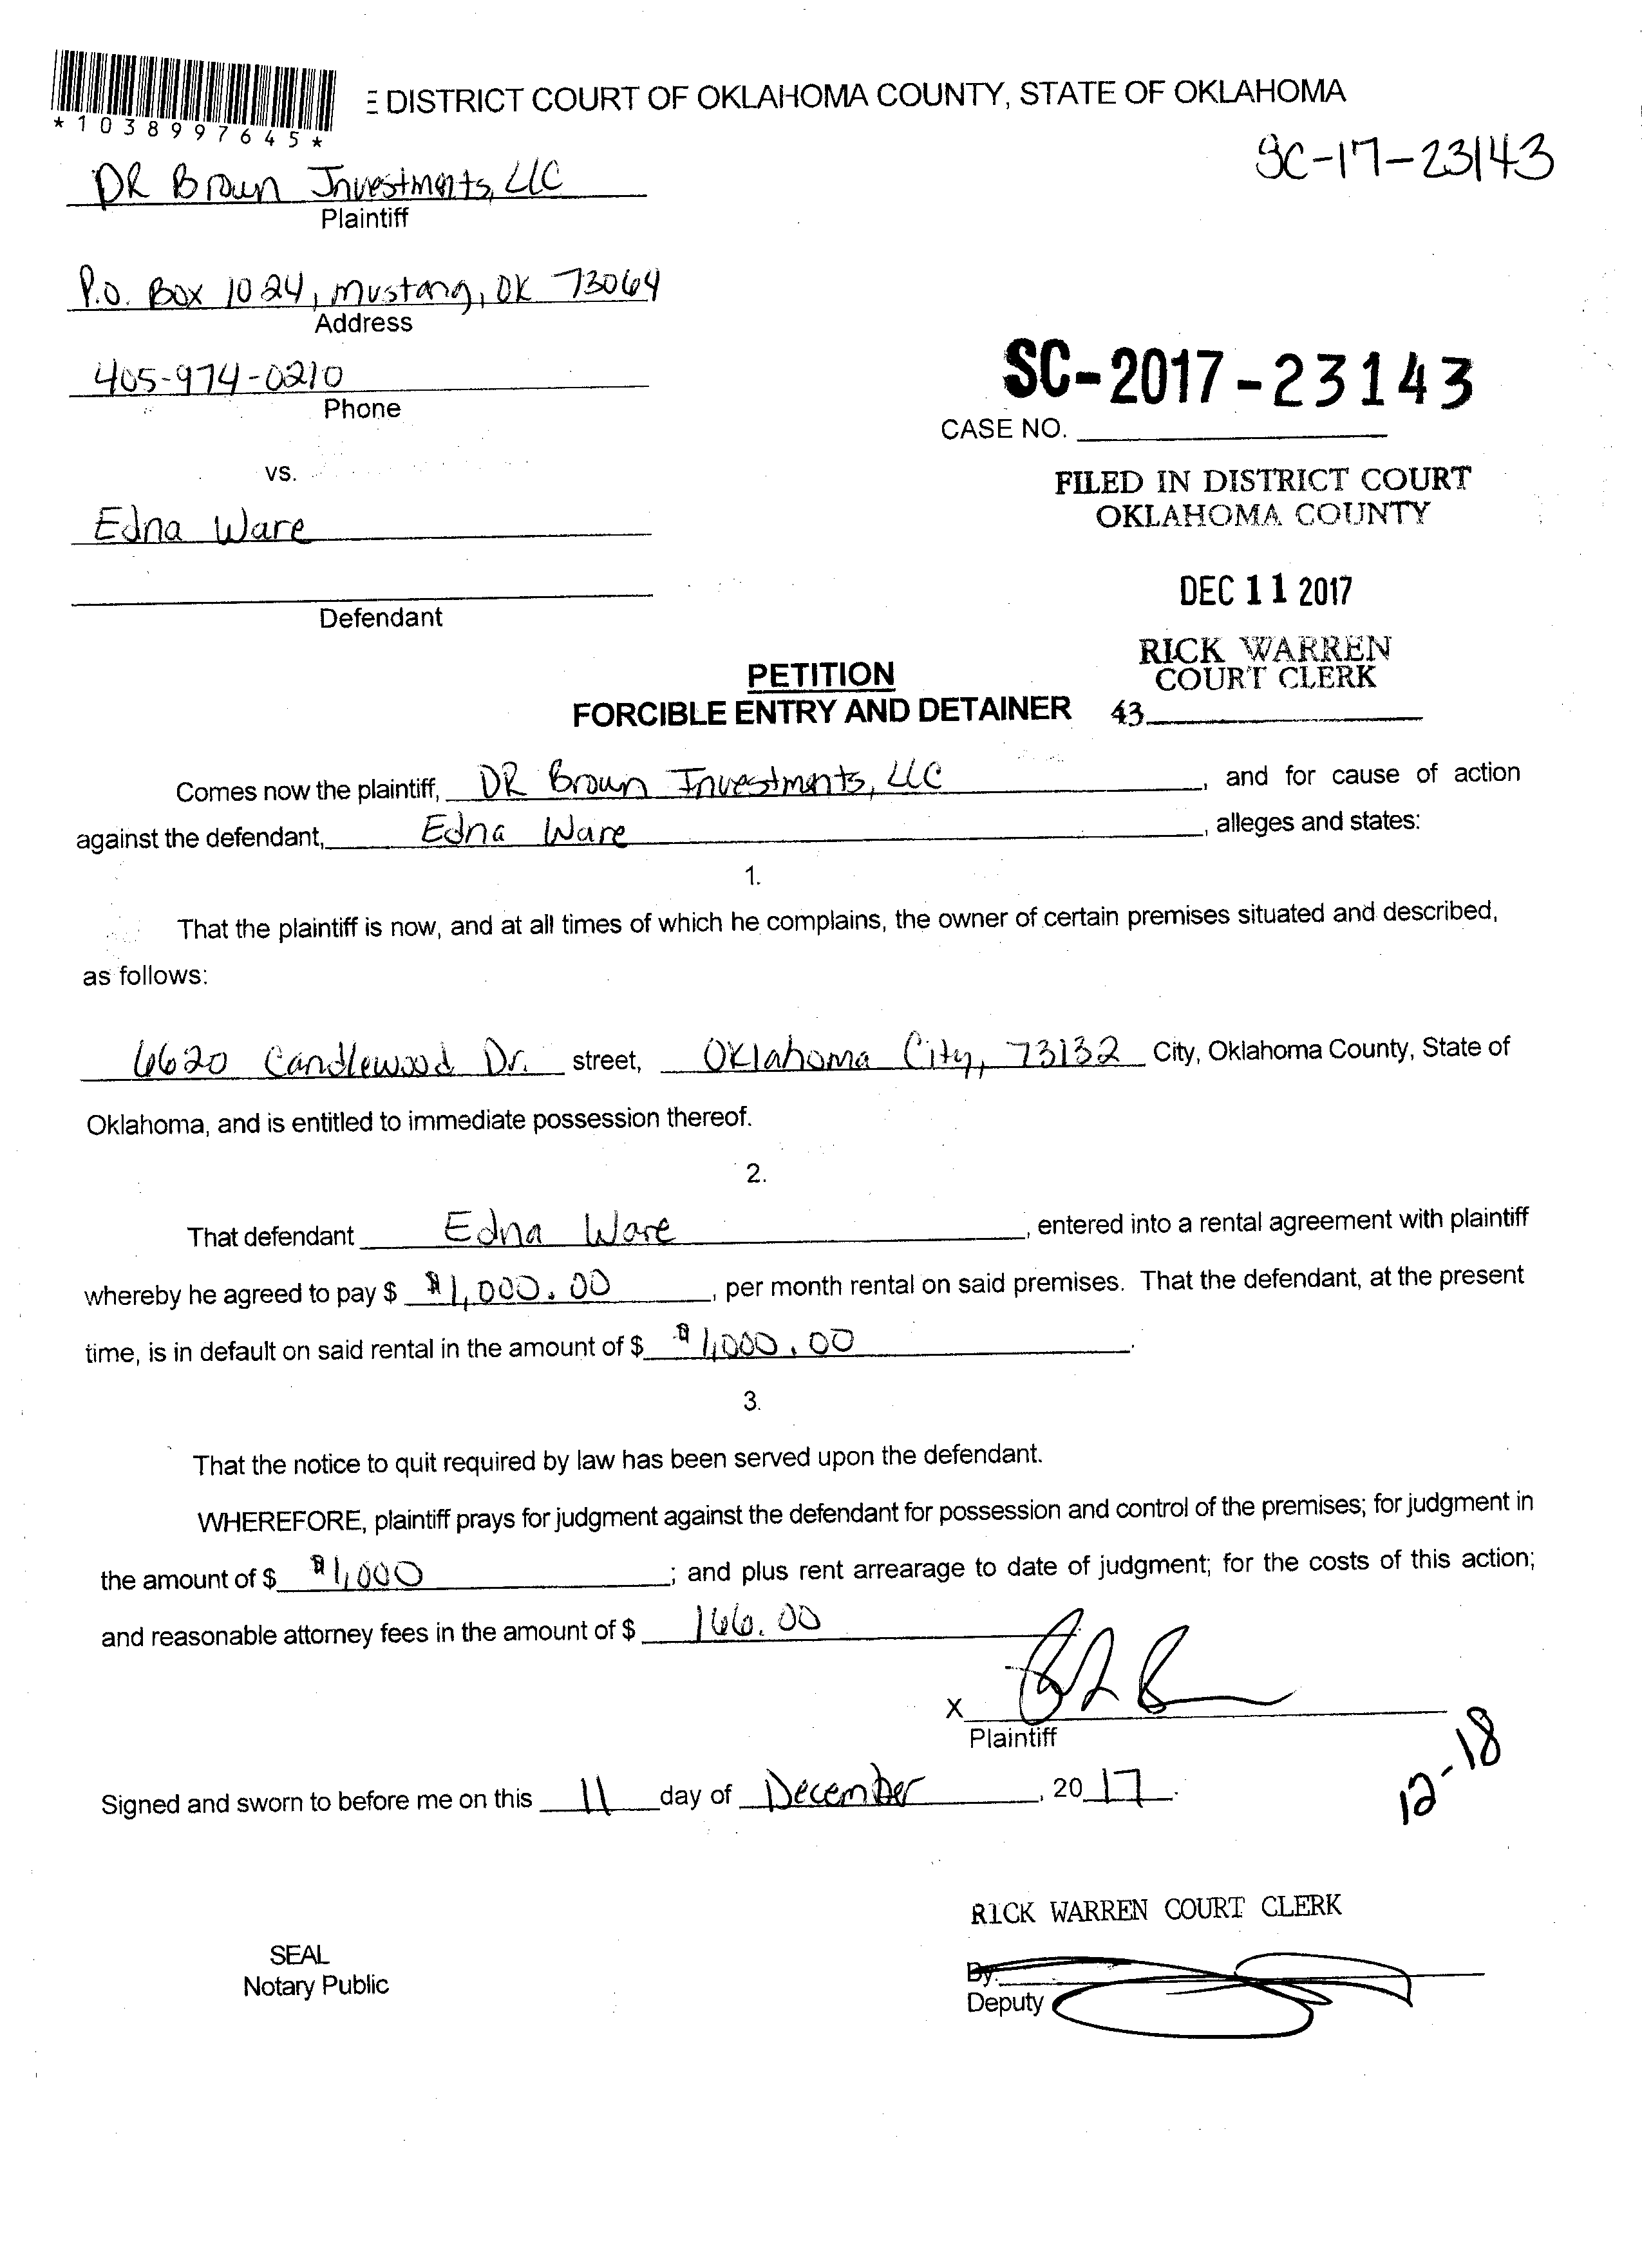 E DISTRICT COURT OF OKLAHOMA COUNTY, STATE OF OKLAHOMA
*1038997645*
SC-17-23143
DR Brown Investments, LLC
Plaintiff
P.O. Box 1024, Mustang, OK 73064
Address
405-974-0210
Phone
SC-2017-23143
CASE NO.
vs.
FILED IN DISTRICT COURT
OKLAHOMA COUNTY
Edna Ware
DEC 11 2017
Defendant
RICK WARREN
COURT CLERK
PETITION
FORCIBLE ENTRY AND DETAINER 43
Comes now the plaintiff, DR Brown Investments, LLC, and for cause of action
against the defendant, Edna Ware, alleges and states:
1.
That the plaintiff is now, and at all times of which he complains, the owner of certain premises situated and described,
as follows:
6620 Candlewood Dr. street, Oklahoma City, 73132 City, Oklahoma County, State of
Oklahoma, and is entitled to immediate possession thereof.
2.
That defendant Edna Ware, entered into a rental agreement with plaintiff
whereby he agreed to pay $ $1,000.00, per month rental on said premises. That the defendant, at the present
time, is in default on said rental in the amount of $ $1,000.00.
3.
That the notice to quit required by law has been served upon the defendant.
WHEREFORE, plaintiff prays for judgment against the defendant for possession and control of the premises; for judgment in
the amount of $ $1,000; and plus rent arrearage to date of judgment; for the costs of this action;
and reasonable attorney fees in the amount of $ 166.00
X
Plaintiff
12-18
Signed and sworn to before me on this 11 day of December, 2017.
RICK WARREN COURT CLERK
SEAL
Notary Public
By:
Deputy